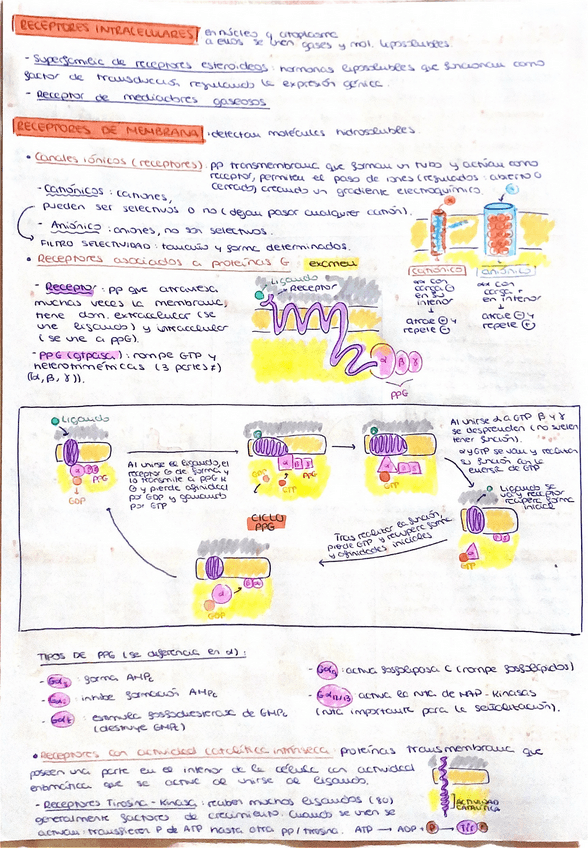 RECEPTORES INTRACELULARES en núcleo y citoplasma
a ellos se unen gases y mol. liposolubles.
- Superfamilia de receptores esteroideos: hormonas liposolubles que funcionan como
factor de transducción, regulando la expresión génica.
- Receptor de mediadores gaseosos
RECEPTORES DE MEMBRANA: detectan moléculas hidrosolubles.
• Canales iónicos (receptores): pp transmembrana que forman un tubo y actúan como
receptor, permiten el paso de iones (regulados: abierto o
cerrado) creando un gradiente electroquímico.
- Catiónicos: cationes,
pueden ser selectivos o no (dejan pasar cualquier catión).
- Aniónico: aniones, no son selectivos.
FILTRO SELECTIVIDAD: tamaño y forma determinados.
CATIÓNICO
aa con
carga ⊖
en su
interior
↓
atrae ⊕ y
repele ⊖
ANIÓNICO
aa con
carga +
en interior
↓
atrae ⊖ y
repele ⊕
• Receptores asociados a proteínas G examen
- Receptor: pp que atraviesa
muchas veces la membrana,
tiene dom. extracelular (se
une ligando) y intracelular
(se une a ppG).
- PPG (GTPasa): rompe GTP y
heterotrimméricas (3 partes ≠)
(α, β, γ)).
Ligando
Receptor
α β γ
PPG
Ligando
α β γ
GDP
Al unirse el ligando, el
receptor G se forma y
lo transmite a ppG y
G y pierde afinidad
por GDP y ganando
por GTP
GDP
GTP
PPG
GTP
Al unirse α a GTP β y γ
se desprenden (no suelen
tener función).
α y GTP se van y realizan
su función con la
energía de GTP
Ligando se
va y receptor
recupera forma
inicial
GTP
CICLO
PPG
Tras realizar la función,
pierde GTP y recupera forma
y afinidades iniciales
α
GDP
TIPOS DE PPG (se diferencia en α):
- Gαs: forma AMPc
- Gαi: inhibe formación AMPc
- Gαt: estimula fosfodiesterasa de GMPc
(destruye GMPc)
- Gαq: activa fosfolipasa C (rompe fosfolípidos)
- Gα12/13 activa la ruta de MAP-Kinasas
(ruta importante para la señalización).
• Receptores con actividad catalítica intrínseca: proteínas transmembrana que
poseen una parte en el interior de la célula con actividad
enzimática que se activa al unirse al ligando.
- Receptores Tirosina-Kinasa: reciben muchos ligandos (90)
generalmente factores de crecimiento. Cuando se unen se
activan: transfieren P de ATP hasta otra pp/tirosina. ATP → ADP + P → Tir P
ACTIVIDAD
CATALÍTICA